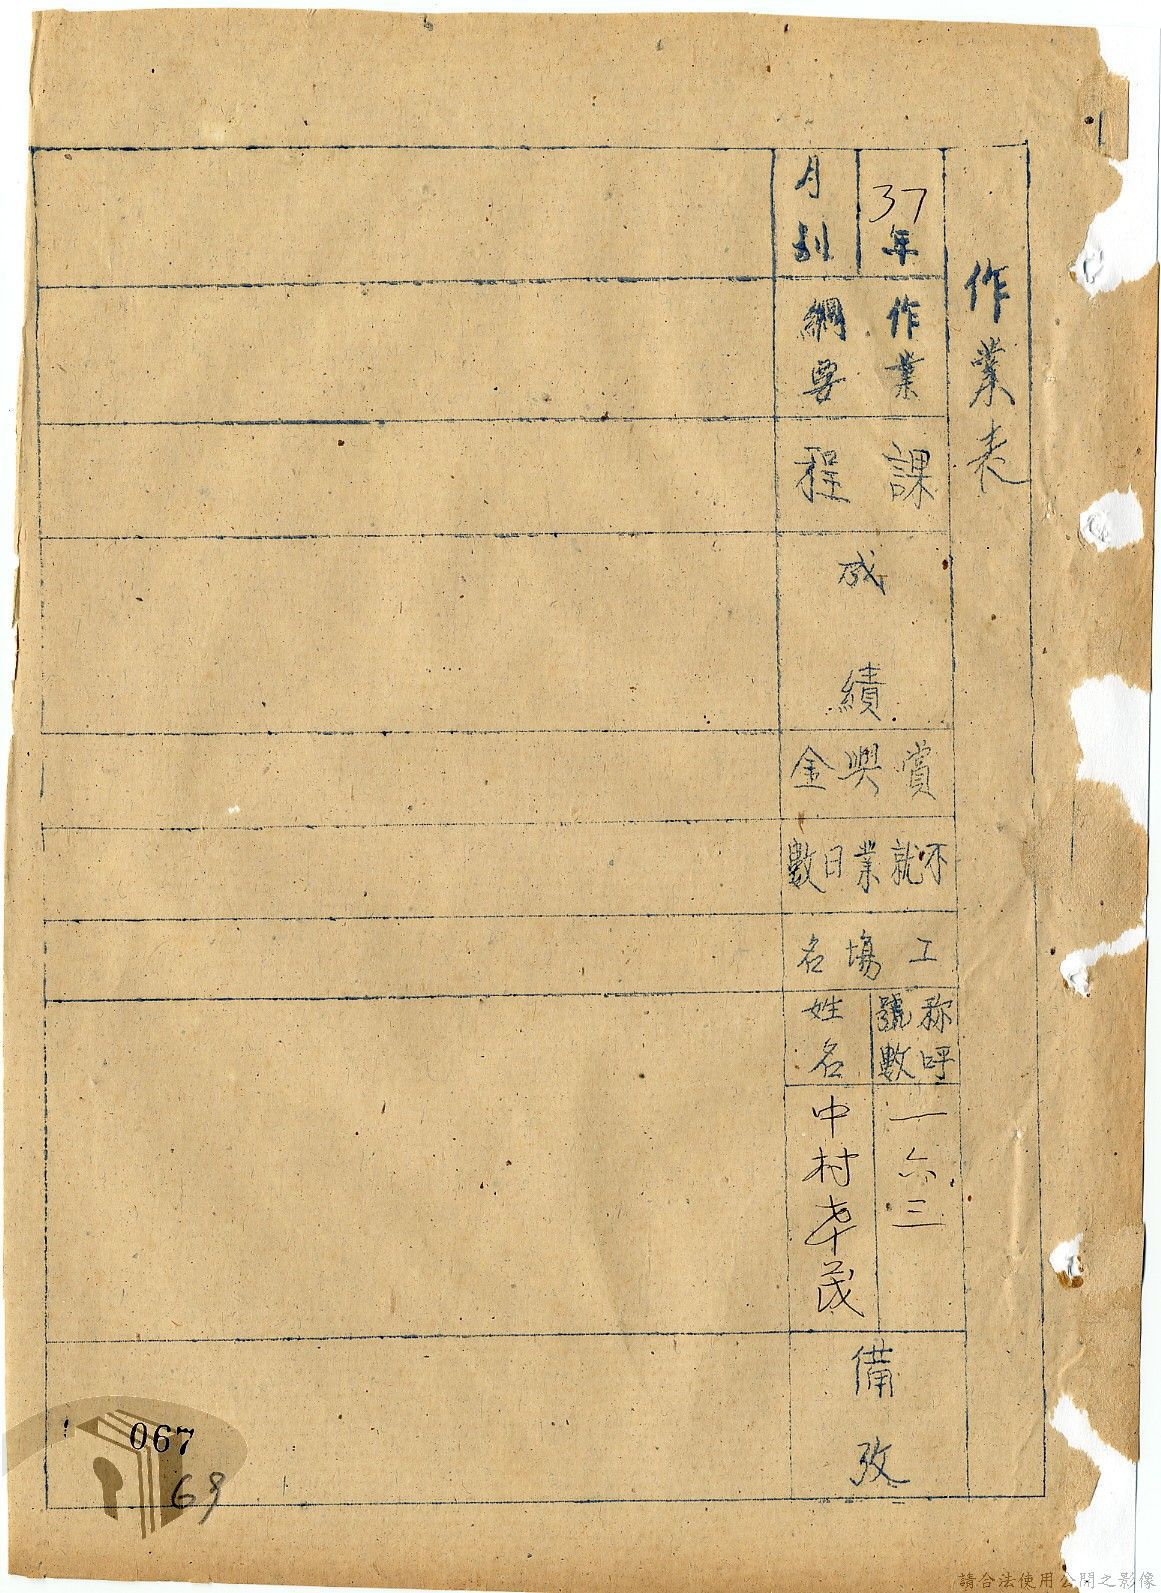 作業表
37年
月別
作業
綱要
課程
成績
賞與金
不就業日數
工場名
称呼
號數
姓名
一六三
中村孝茂
備攷
067
69
請合法使用公開之影像